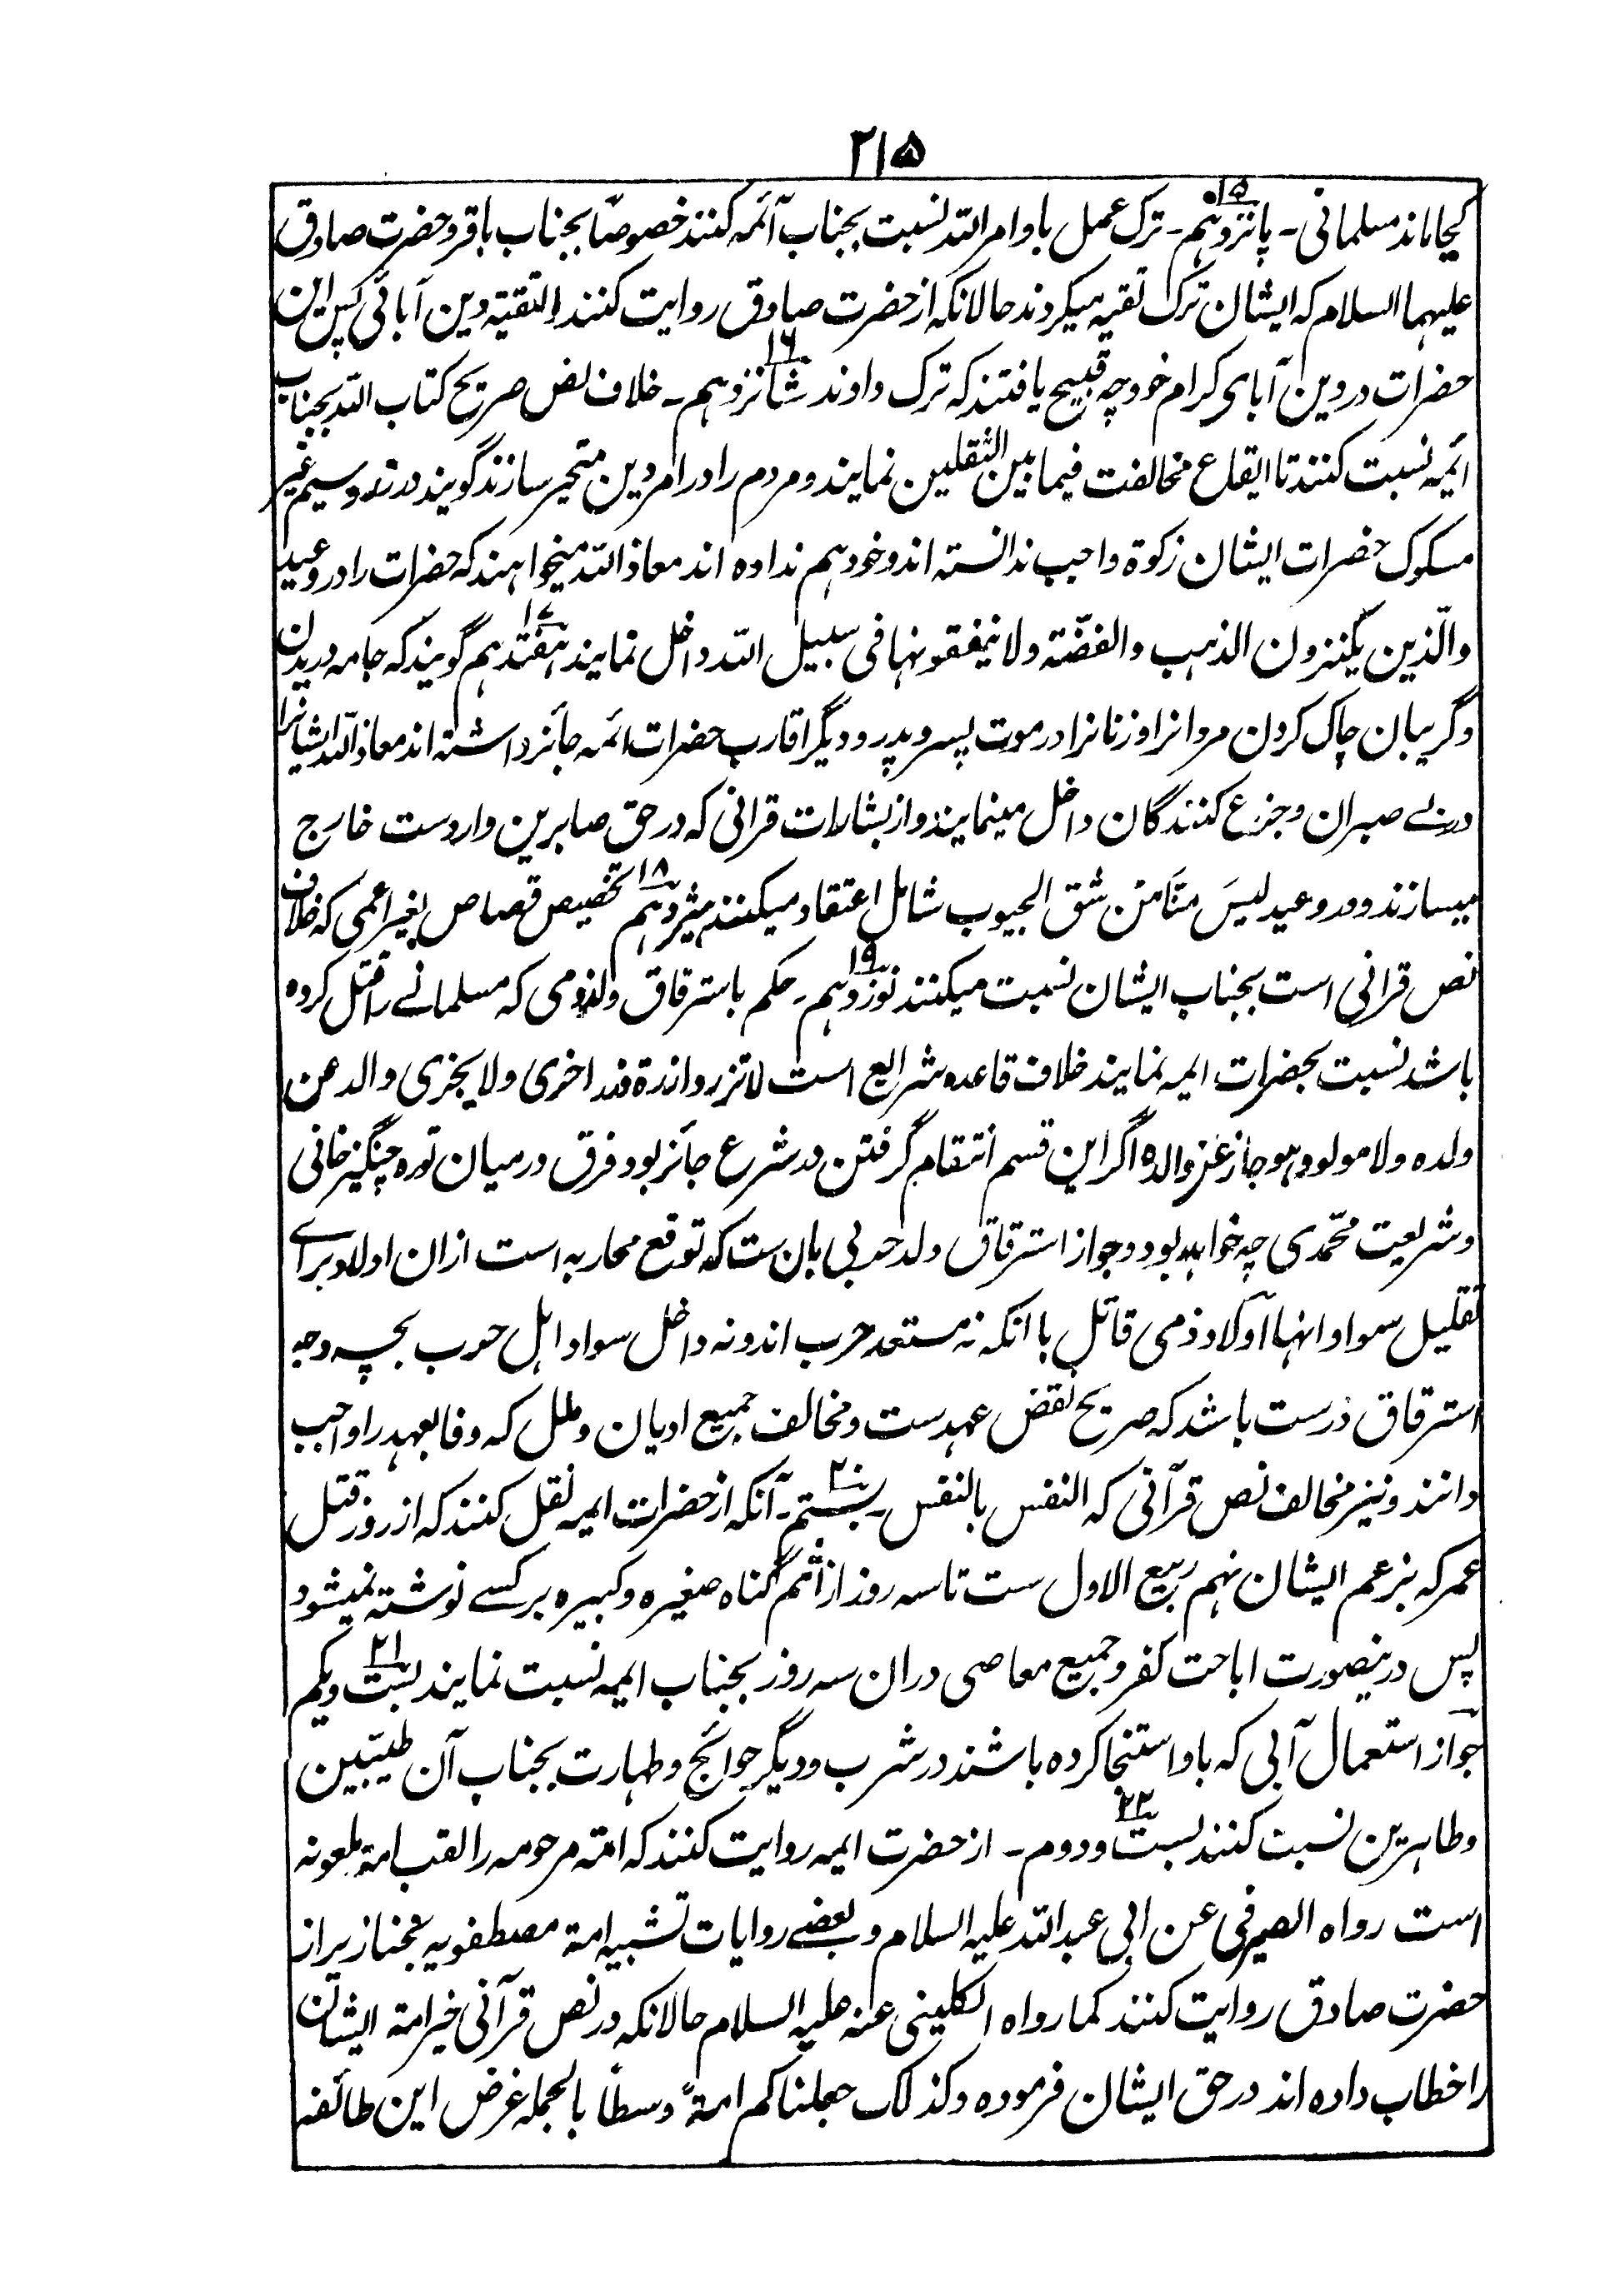 ۲۱۵
کجا ماند مسلمانی۔ پانزدہم۱۵۔ ترک عمل باوامر اللہ نسبت بجناب آئمہ کنند خصوصًا بجناب باقر و حضرت صادق
علیہما السلام کہ ایشان ترک تقیہ میکردند حالانکہ از حضرت صادق روایت کنند التقیۃ دین آبائی پس این
حضرات در دین آبای کرام خود چہ قبیح یافتند کہ ترک دادند شانزدہم۱۶۔ خلاف نص صریح کتاب اللہ بجناب
ائمہ نسبت کنند تا ایقاع مخالفت فیما بین الثقلین نمایند و مردم را در امر دین متحیر سازند گویند در زر و سیم غیر
مسکوک حضرات ایشان زکوۃ واجب ندانستہ اند و خود ہم ندادہ اند معاذ اللہ میخواہند کہ حضرات را در وعید
والّذین یکنزون الذہب والفضّۃ ولا ینفقونہا فی سبیل اللہ داخل نمایند ہفتدہم۱۷ گویند کہ جامہ دریدن
و گریبان چاک کردن مردانرا و زنانرا در موت پسر و پدر و دیگر اقارب حضرات ائمہ جائز داشتہ اند معاذ اللہ ایشانرا
در بے صبران و جزع کنندگان داخل مینمایند و از بشارات قرانی کہ در حق صابرین واردست خارج
میسازند و در وعید لیسَ منّا مَن شق الجیوب شامل اعتقاد میکنند ہیژدہم۱۸ تخصیص قصاص بغیر اعمی کہ خلاف
نص قرانی است بجناب ایشان نسبت میکنند نوزدہم۱۹۔ حکم باسترقاق ولد ذمی کہ مسلمانے را قتل کردہ
باشد نسبت بحضرات ایمہ نمایند خلاف قاعدہ شرایع است لا تزر وازرۃ وزر اخری ولا یجزی والد عن
ولدہ ولا مولود ہو جاز عن والدہ اگر این قسم انتقام گرفتن در شرع جائز بود فرق درمیان تورہ چنگیز خانی
و شریعت محمّدی چہ خواہد بود و جواز استرقاق ولد حربی بان ست کہ توقع محاربہ است ازان اولاد براے
تقلیل سواد انہا اولاد ذمی قاتل با انکہ نہ مستعد حرب اند و نہ داخل سواد اہل حرب بچہ وجہ
استرقاق درست باشد کہ صریح نقض عہدست و مخالف جمیع ادیان و ملل کہ وفا بعہد را واجب
دانند و نیز مخالف نص قرآنی کہ النفس بالنفس۔ بستم۲۰۔ آنکہ از حضرات ایمہ نقل کنند کہ از روز قتل
عمر کہ بزعم ایشان نہم ربیع الاول ست تا سہ روز از اثم گناہ صغیرہ و کبیرہ بر کسے نوشتہ نمیشود
پس درینصورت اباحت کفر و جمیع معاصی دران سہ روز بجناب ایمہ نسبت نمایند بست و یکم۲۱
جواز استعمال آبی کہ باو استنجا کردہ باشند در شرب و دیگر حوائج و طہارت بجناب آن طیبّین
و طاہرین نسبت کنند بست و دوم۲۲۔ از حضرت ایمہ روایت کنند کہ امتہ مرحومہ را لقب امۃ ملعونہ
است رواہ الصیرفی عن ابی عبد اللہ علیہ السلام و بعضے روایات تشبیہ امۃ مصطفویہ بخنازیر از
حضرت صادق روایت کنند کما رواہ الکلینی عنہ علیہ السلام حالانکہ در نص قرآنی خیر امۃ ایشان
را خطاب دادہ اند در حق ایشان فرمودہ وکذلک جعلناکم امۃً وسطاً بالجملہ غرض این طائفہ